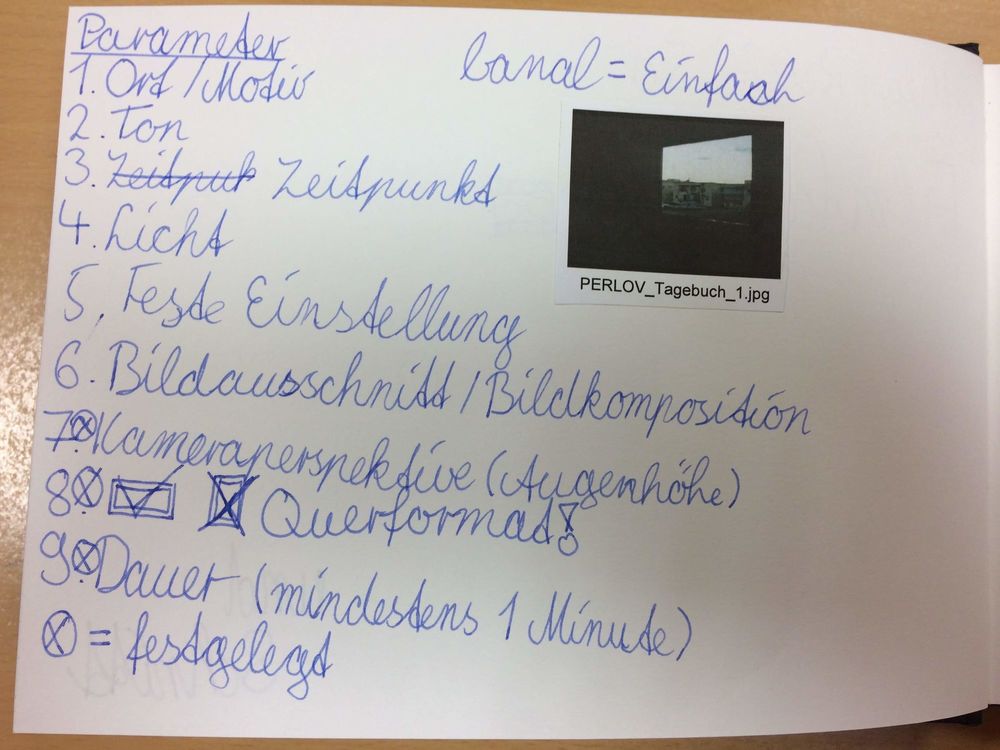 Parameter
1. Ort/Motiv
banal = Einfach
2. Ton
3. Zeitpuk Zeitpunkt
4. Licht
PERLOV_Tagebuch_1.jpg
5. Feste Einstellung
6. Bildausschnitt/Bildkomposition
7. ⊗ Kameraperspektive (Augenhöhe)
8. ⊗ Querformat!
9. ⊗ Dauer (mindestens 1 Minute)
⊗ = festgelegt